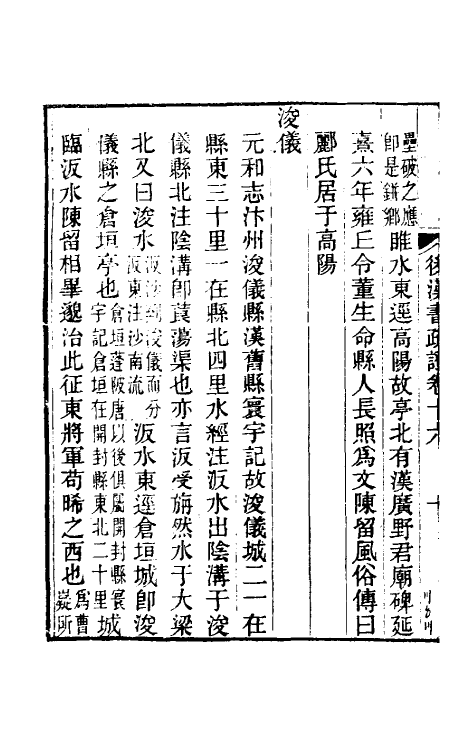 壘破之應即是鉼鄉睢水東逕高陽故亭北有漢廣野君廟碑延
熹六年雍丘令董生命縣人長照爲文陳留風俗傳曰
酈氏居于高陽
浚儀
元和志汴州浚儀縣漢舊縣寰宇記故浚儀城二一在
縣東三十里一在縣北四里水經注汳水出陰溝于浚
儀縣北注陰溝卽蒗蕩渠也亦言汳受旃然水于大梁
北又曰浚水汳沙到浚儀而分汳東注沙南流汳水東逕倉垣城卽浚
儀縣之倉垣亭也倉垣蓬陂唐以後俱屬開封縣寰宇記倉垣在開封縣東北二十里城
臨汳水陳留相畢邈治此征東將軍苟晞之西也爲曹嶷所
後漢書疏證卷十六